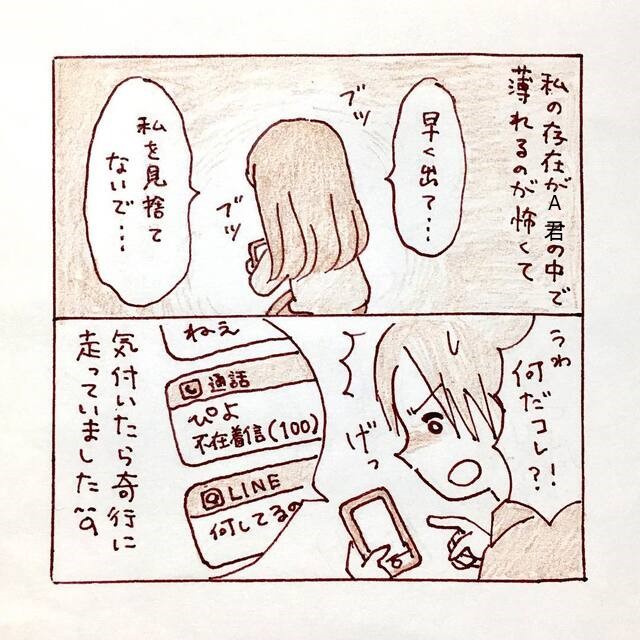 私の存在がA君の中で
薄れるのが怖くて
早く出て・・・
ブツ
ブツ
私を見捨て
ないで・・・
うわ
何だコレ?!
げっ
ねえ
通話
ぴよ
不在着信(100)
LINE
何してるの
気付いたら奇行に
走っていました^^q